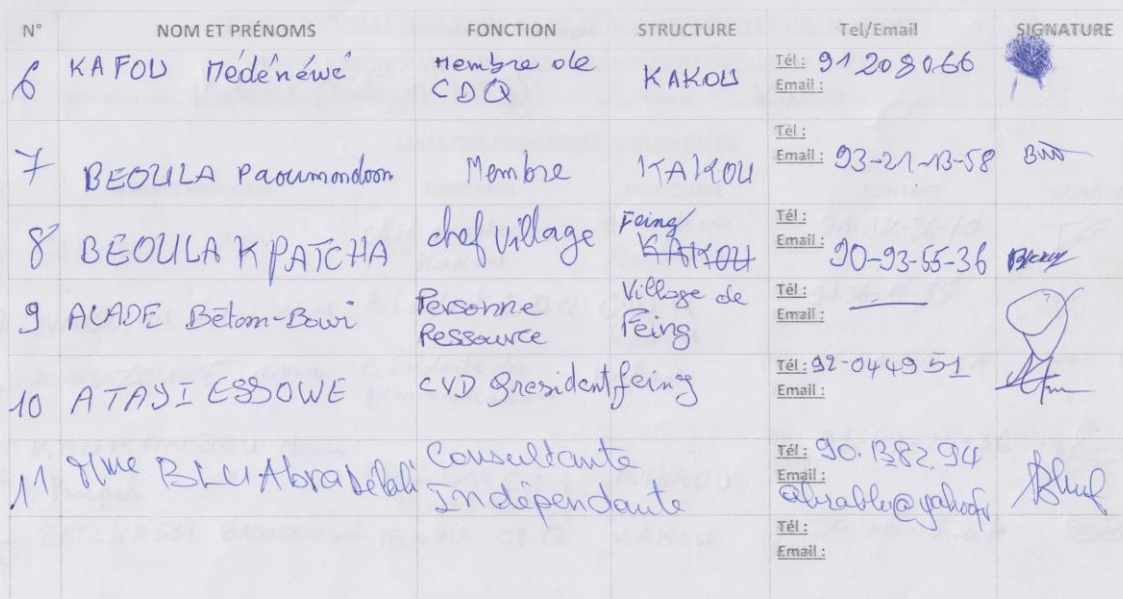 N° NOM ET PRÉNOMS FONCTION STRUCTURE Tel/Email SIGNATURE
6 KAFOU Médénéwé Membre de CDQ KAKOU Tél : 91208066
Email :
7 BEOULA Paoumondom Membre KAKOU Tél :
Email : 93-21-13-58
8 BEOULA KPATCHA chef Village Feing/ KAKOU Tél :
Email : 90-93-55-36
9 ALADE Bètom-Bawi Personne Ressource Village de Feing Tél :
Email :
10 ATAYI ESSOWE CVD president feing Tél : 92-044951
Email :
11 Mme BLU Abra Consultante Indépendante Tél : 90.138294
Email :
Tél :
Email :